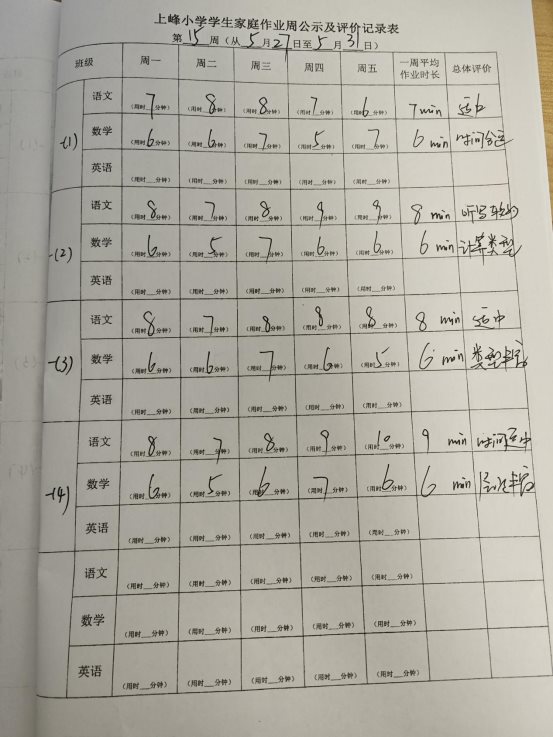 上峰小学学生家庭作业周公示及评价记录表
第 15 周（从 5 月 27 日至 5 月 31 日）
班级 周一 周二 周三 周四 周五 一周平均作业时长 总体评价
一(1) 语文 7（用时___分钟） 8（用时___分钟） 8（用时___分钟） 7（用时___分钟） 6（用时___分钟） 7 min 适中
数学 6（用时___分钟） 6（用时___分钟） 7（用时___分钟） 5（用时___分钟） 7（用时___分钟） 6 min 时间合适
英语 （用时___分钟） （用时___分钟） （用时___分钟） （用时___分钟） （用时___分钟）
一(2) 语文 8（用时___分钟） 7（用时___分钟） 8（用时___分钟） 9（用时___分钟） 9（用时___分钟） 8 min 听写
数学 6（用时___分钟） 5（用时___分钟） 7（用时___分钟） 6（用时___分钟） 6（用时___分钟） 6 min 计算类型
英语 （用时___分钟） （用时___分钟） （用时___分钟） （用时___分钟） （用时___分钟）
一(3) 语文 8（用时___分钟） 7（用时___分钟） 8（用时___分钟） 8（用时___分钟） 8（用时___分钟） 8 min 适中
数学 6（用时___分钟） 6（用时___分钟） 7（用时___分钟） 6（用时___分钟） 5（用时___分钟） 6 min 类型丰富
英语 （用时___分钟） （用时___分钟） （用时___分钟） （用时___分钟） （用时___分钟）
一(4) 语文 8（用时___分钟） 7（用时___分钟） 8（用时___分钟） 9（用时___分钟） 10（用时___分钟） 9 min 时间适中
数学 6（用时___分钟） 5（用时___分钟） 6（用时___分钟） 7（用时___分钟） 6（用时___分钟） 6 min 丰富
英语 （用时___分钟） （用时___分钟） （用时___分钟） （用时___分钟） （用时___分钟）
语文 （用时___分钟） （用时___分钟） （用时___分钟） （用时___分钟） （用时___分钟）
数学 （用时___分钟） （用时___分钟） （用时___分钟） （用时___分钟） （用时___分钟）
英语 （用时___分钟） （用时___分钟） （用时___分钟） （用时___分钟） （用时___分钟）